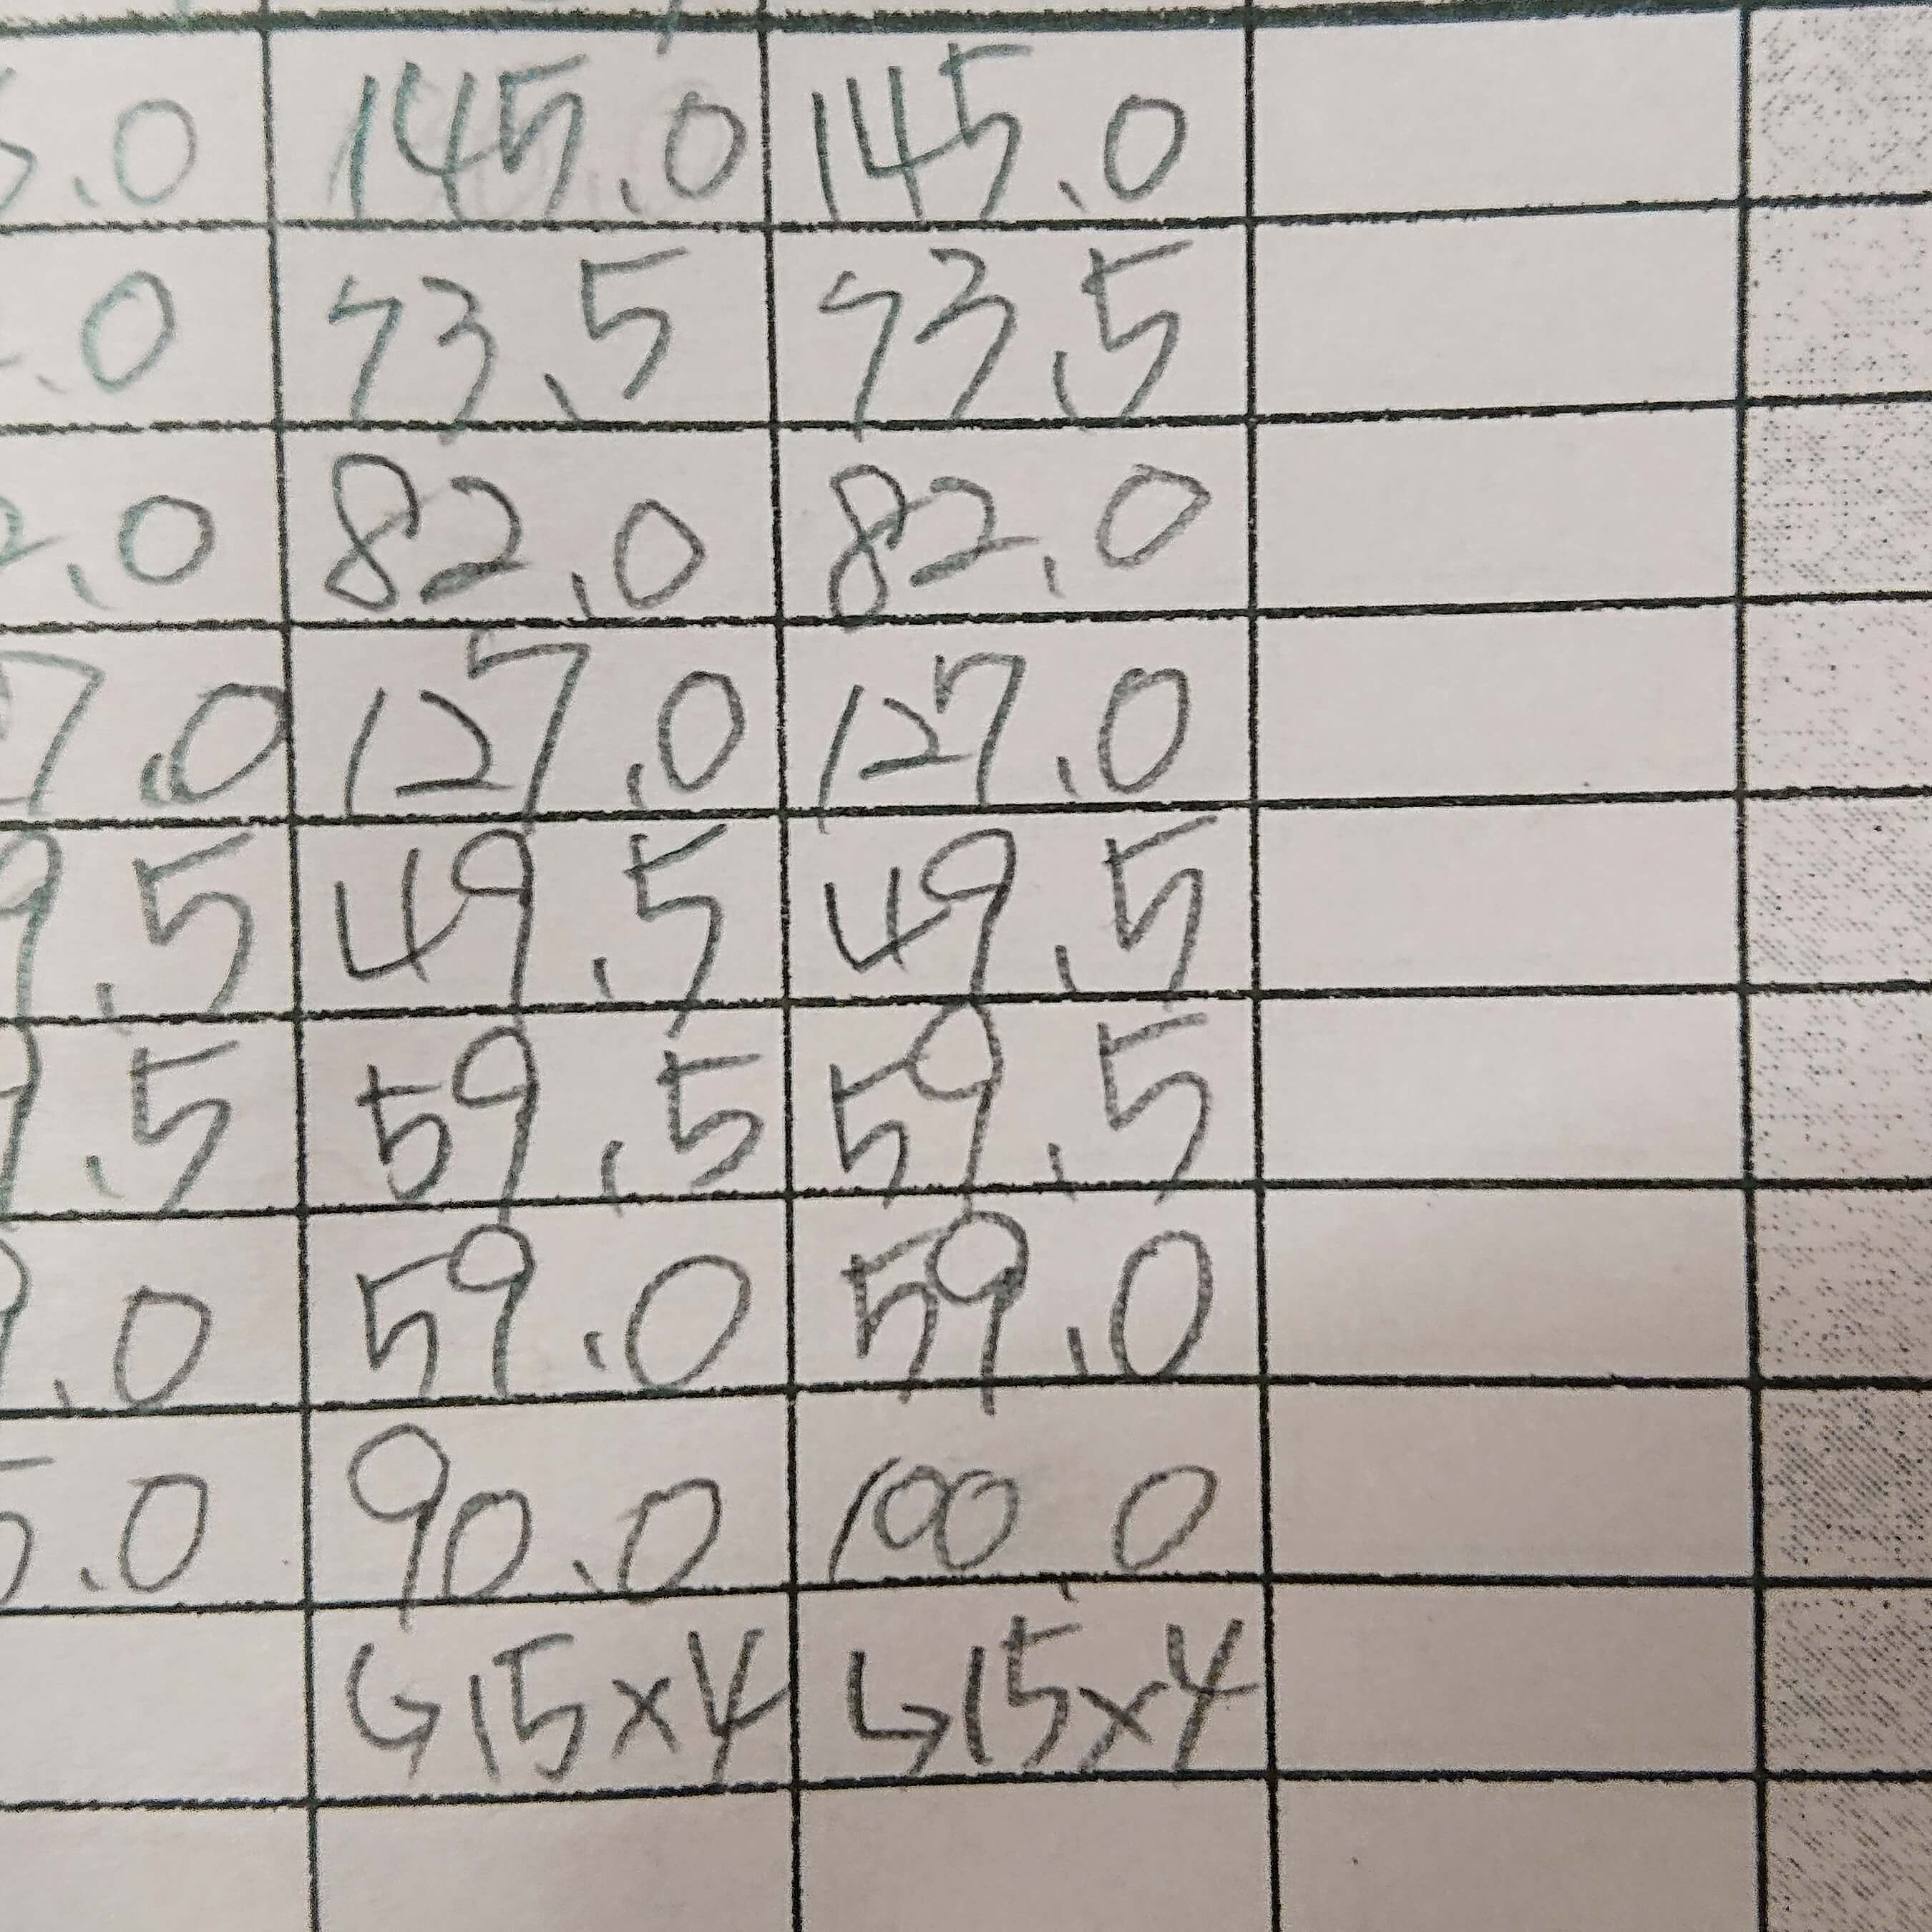 5.0 145.0 145.0
.0 73.5 73.5
2.0 82.0 82.0
7.0 127.0 127.0
9.5 49.5 49.5
9.5 59.5 59.5
9.0 59.0 59.0
5.0 90.0 100.0
↳15×4 ↳15×4